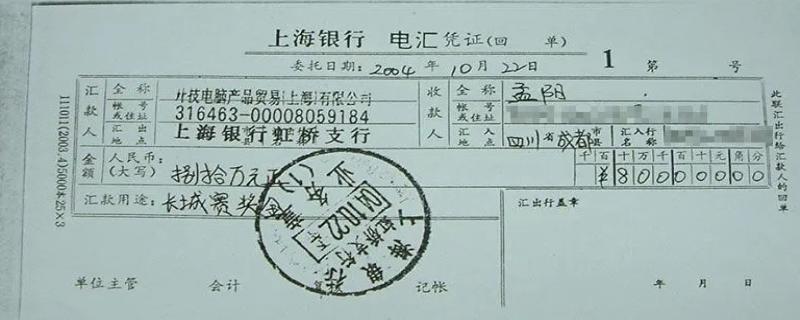 上海银行 电汇凭证(回单) 1 第 号
委托日期: 2004 年 10 月 22 日
汇款人 全称 技电脑产品贸易(上海)有限公司 收款人 全称 孟阳
帐号或住址 316463-00008059184 帐号或住址
汇出地点 上海银行虹桥支行 汇入地点 四川省成都市县 汇入行名称
金额 人民币:(大写) 捌拾万元正 千百十万千百十元角分
¥80000000
汇款用途: 长城赛奖 汇出行盖章
上海银行 虹桥支行 04.10.22 业务 (1)
单位主管 会计 复核 记帐 年 月 日
此联汇出行给汇款人的回单
111011(2003.4)5000本25×3